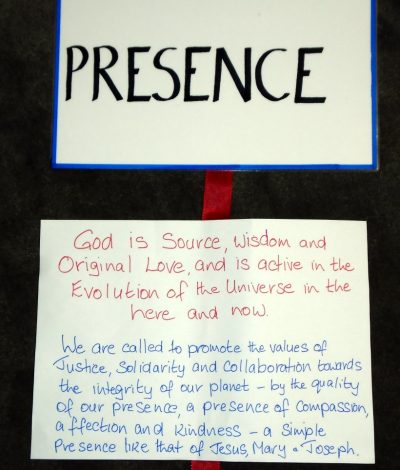 PRESENCE
God is Source, Wisdom and
Original Love, and is active in the
Evolution of the Universe in the
here and now.
We are called to promote the values of
Justice, Solidarity and Collaboration towards
the integrity of our planet – by the quality
of our presence, a presence of Compassion,
affection and kindness – a simple
Presence like that of Jesus, Mary & Joseph.